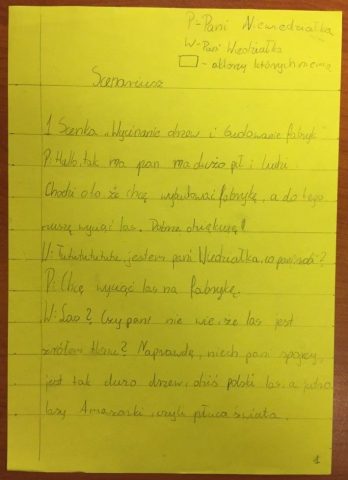 P-Pani Niewiedziałka
W-Pani Wiedziałka
- aktorzy których nie ma
Scenariusz
1 Scenka „Wycinanie drzew i budowanie fabryk"
P: Hallo, tak ma pan ma dużo pił i ludzi
Chodzi oto że chcę wybudować fabrykę, a do tego
muszę wyciąć las. Dobrze dziękuję!
W: Tututututu, jestem pani Wiedziałka, co pani robi?
P: Chcę wyciąć las na fabrykę.
W: Czy pani nie wie, że las jest
źródłem tlenu? Naprawdę, niech pani spojrzy,
jest tak dużo drzew, dziś polski las, a jutro
lasy Amazonki, czyli płuca świata.
1